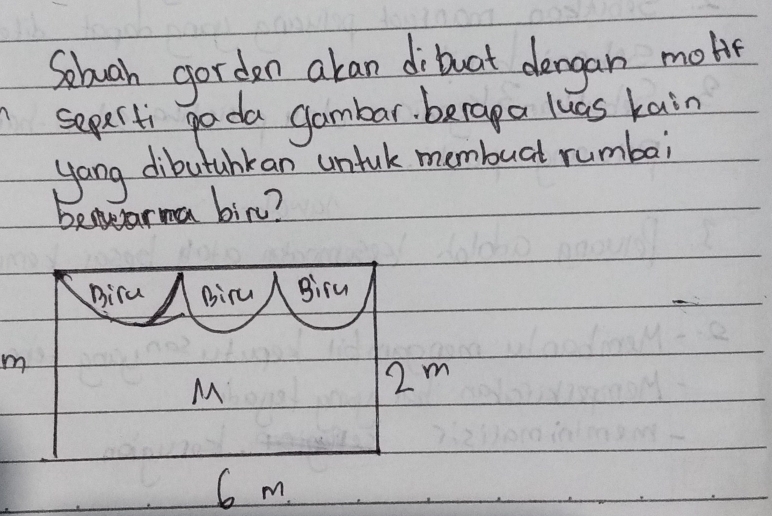 Sebuah gorden akan dibuat dengan motif
seperti pada gambar. berapa luas kain
yang dibutuhkan untuk membuat rumbai
berwarna biru?
Biru Biru Biru
m
M
2 m
6 m